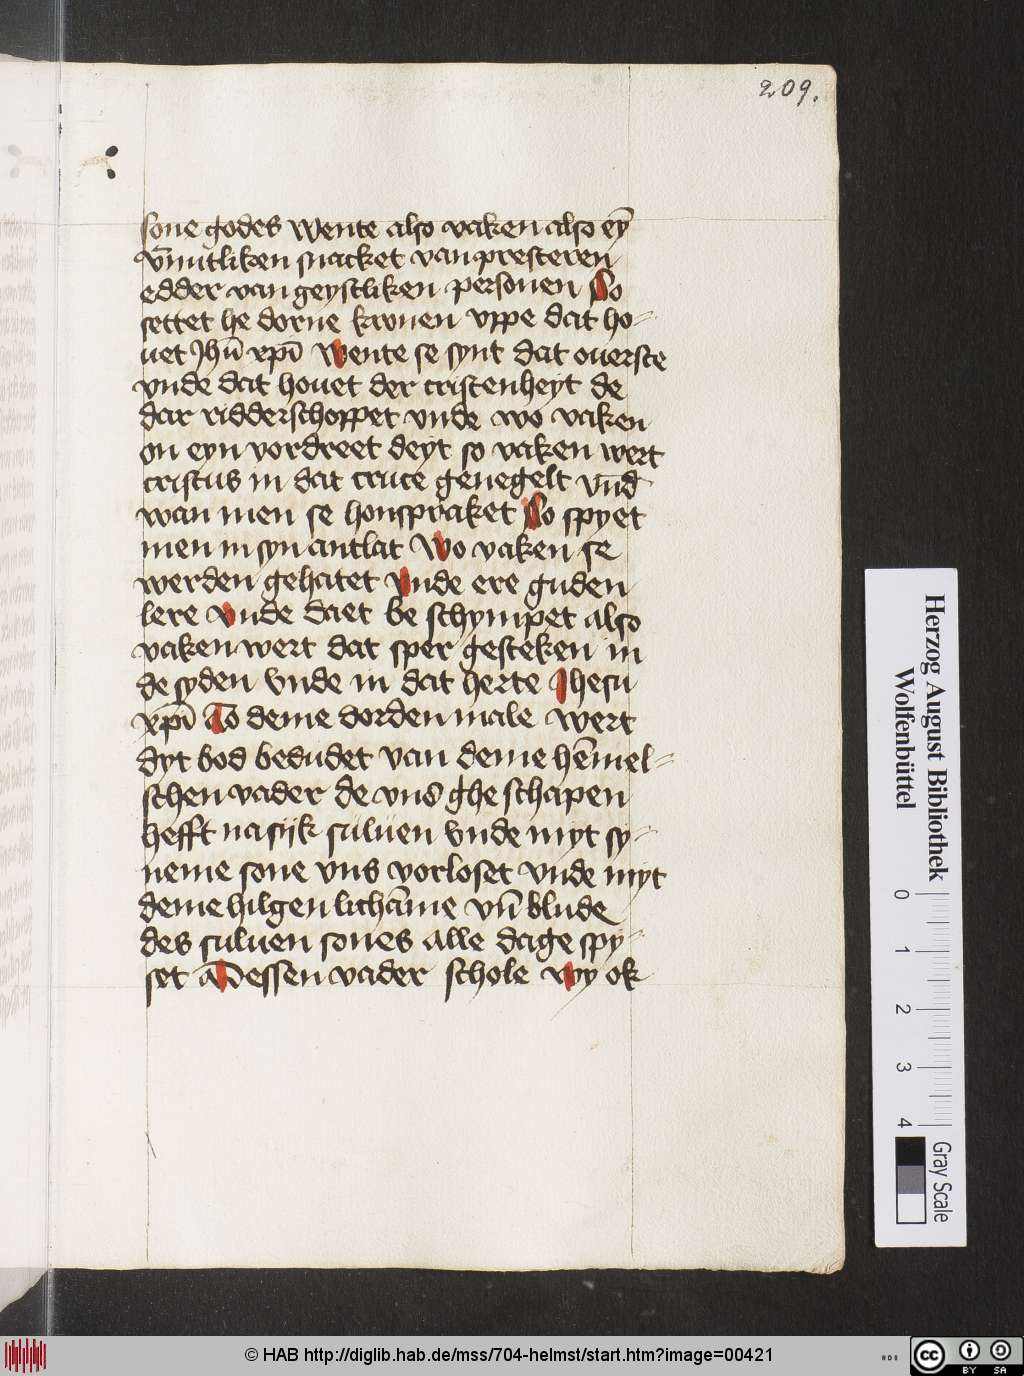 209.
sone godes Wente also vaken also eȳ
vn̄nutliken snacket van presteren
edder van geystliken personen So
settet he dorne kronen vppe dat ho-
uet Jhū xp̄i Wente se synt dat ouerste
vnde dat houet der cristenheyt de
dar ridderschoppet vnde wo vaken
on eyn vordreet deyt so vaken wert
cristus in dat cruce genegelt vn̄d
wan men se honspraket So spyet
men in syn antlat Wo vaken se
werden gehatet vnde ere guden
lere vnde daet be schympet also
vaken wert dat sper gesteken in
de syden vnde in dat herte Jhesu
xp̄i To deme dorden male wert
dyt bod bedudet van deme hēmel-
schen vader de vns ghe schapen
hefft na sijk suluen vnde myt sy-
neme sone vns vorloset vnde myt
deme hilgen lichāme vn̄ blude
des suluen sones alle dage spy-
set Dessen vader schole wy ok
Herzog August Bibliothek
Wolfenbüttel
0 1 2 3 4
Gray Scale
© HAB http://diglib.hab.de/mss/704-helmst/start.htm?image=00421
HAB
cc BY SA